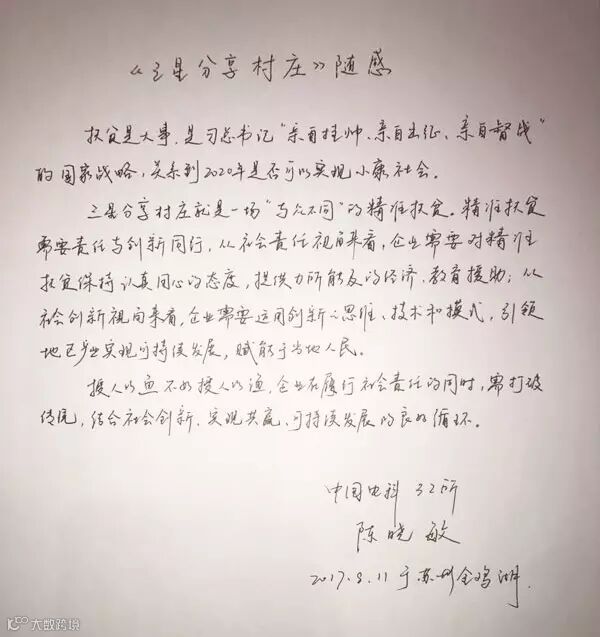 《三星分享村庄》随感
扶贫是大事,是习总书记“亲自挂帅、亲自出征、亲自督战”
的国家战略,关系到2020年是否可以实现小康社会。
三星分享村庄就是一场“与众不同”的精准扶贫。精准扶贫
需要责任与创新同行,从社会责任视角来看,企业需要对精准
扶贫保持认真同心的态度,提供力所能及的经济、教育援助;从
社会创新视角来看,企业需要运用创新心思维、技术和模式,引领
地区步出实现可持续发展,赋能于当地人民。
授人以鱼不如授人以渔,企业在履行社会责任的同时,需打破
传统,结合社会创新、实现共赢、可持续发展的良好循环。
中国电科 32所
陈晓敏
2017.8.11于苏州金鸡湖.
大数跨境